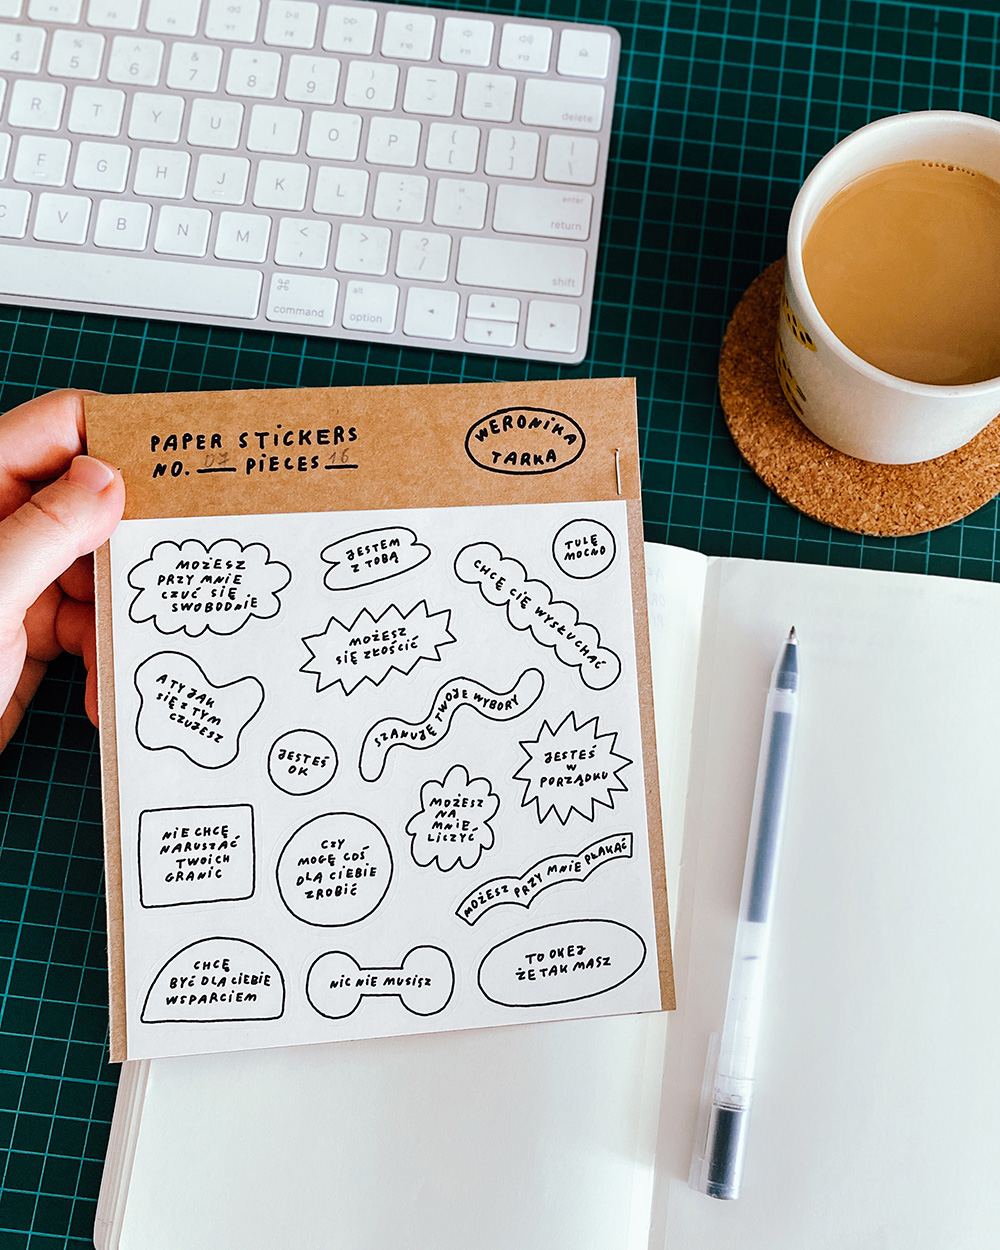 4 5 6 7 8 9 0 - =
R T Y U I O P { [ } ] | \
delete
F G H J K L : ; " '
enter
return
C V B N M < , > . ? /
shift
⌘
command
alt
option
PAPER STICKERS
NO. 07 PIECES 16
WERONIKA
TARKA
MOŻESZ
PRZY MNIE
CZUĆ SIĘ
SWOBODNIE
JESTEM
Z TOBĄ
TULĘ
MOCNO
CHCĘ CIĘ WYSŁUCHAĆ
MOŻESZ
SIĘ ZŁOŚCIĆ
A TY JAK
SIĘ Z TYM
CZUJESZ
SZANUJĘ TWOJE WYBORY
JESTEŚ
OK
JESTEŚ
W
PORZĄDKU
MOŻESZ
NA
MNIE
LICZYĆ
NIE CHCĘ
NARUSZAĆ
TWOICH
GRANIC
CZY
MOGĘ COŚ
DLA CIEBIE
ZROBIĆ
MOŻESZ PRZY MNIE PŁAKAĆ
CHCĘ
BYĆ DLA CIEBIE
WSPARCIEM
NIC NIE MUSISZ
TO OKEJ
ŻE TAK MASZ